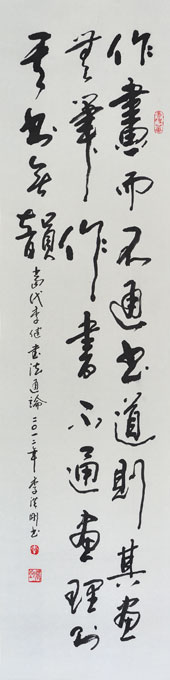 作畫而不通書道則其畫
無筆作書不通畫理則
其書無韻
當代李健書法通論二〇一二年李洪剛書